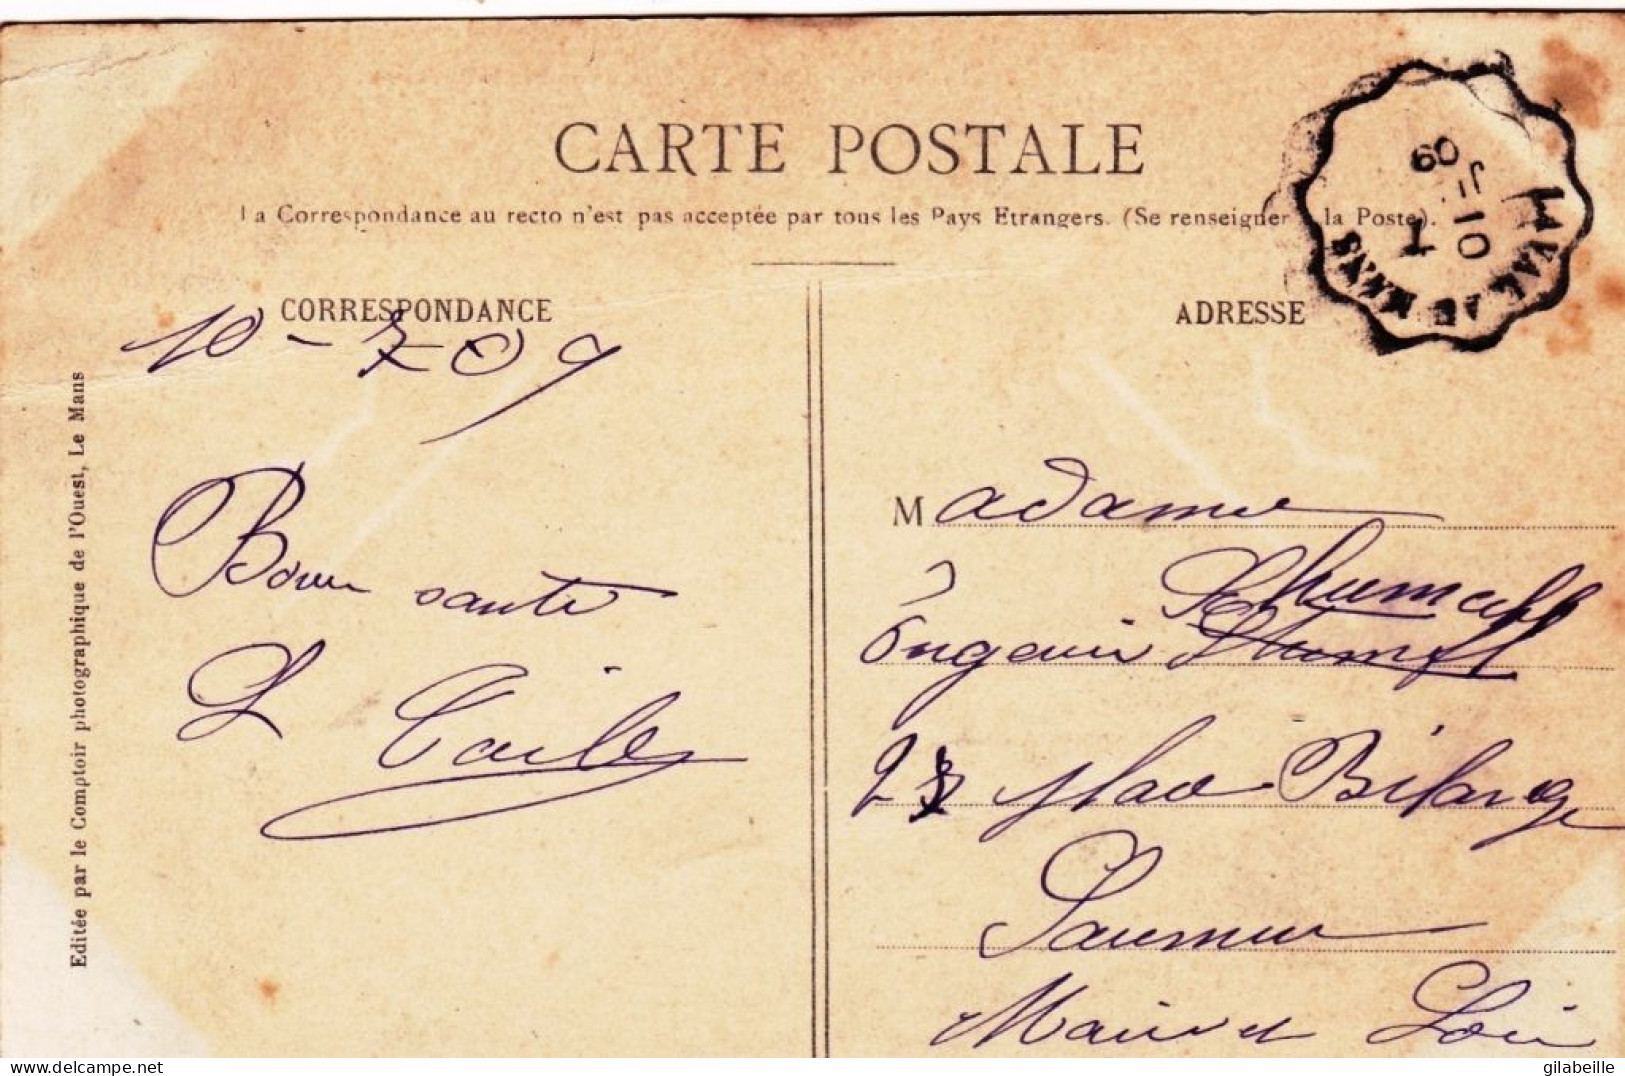 CARTE POSTALE
La Correspondance au recto n'est pas acceptée par tous les Pays Etrangers. (Se renseigner à la Poste).
CORRESPONDANCE
10-7 09
Bonne santé
L
Editée par le Comptoir photographique de l'Ouest, Le Mans
ADRESSE
LAVAL AU MANS
10 - 7
09
Madame
place Bilange
Saumur
Maine et Loire
delcampe.net
gilabeille